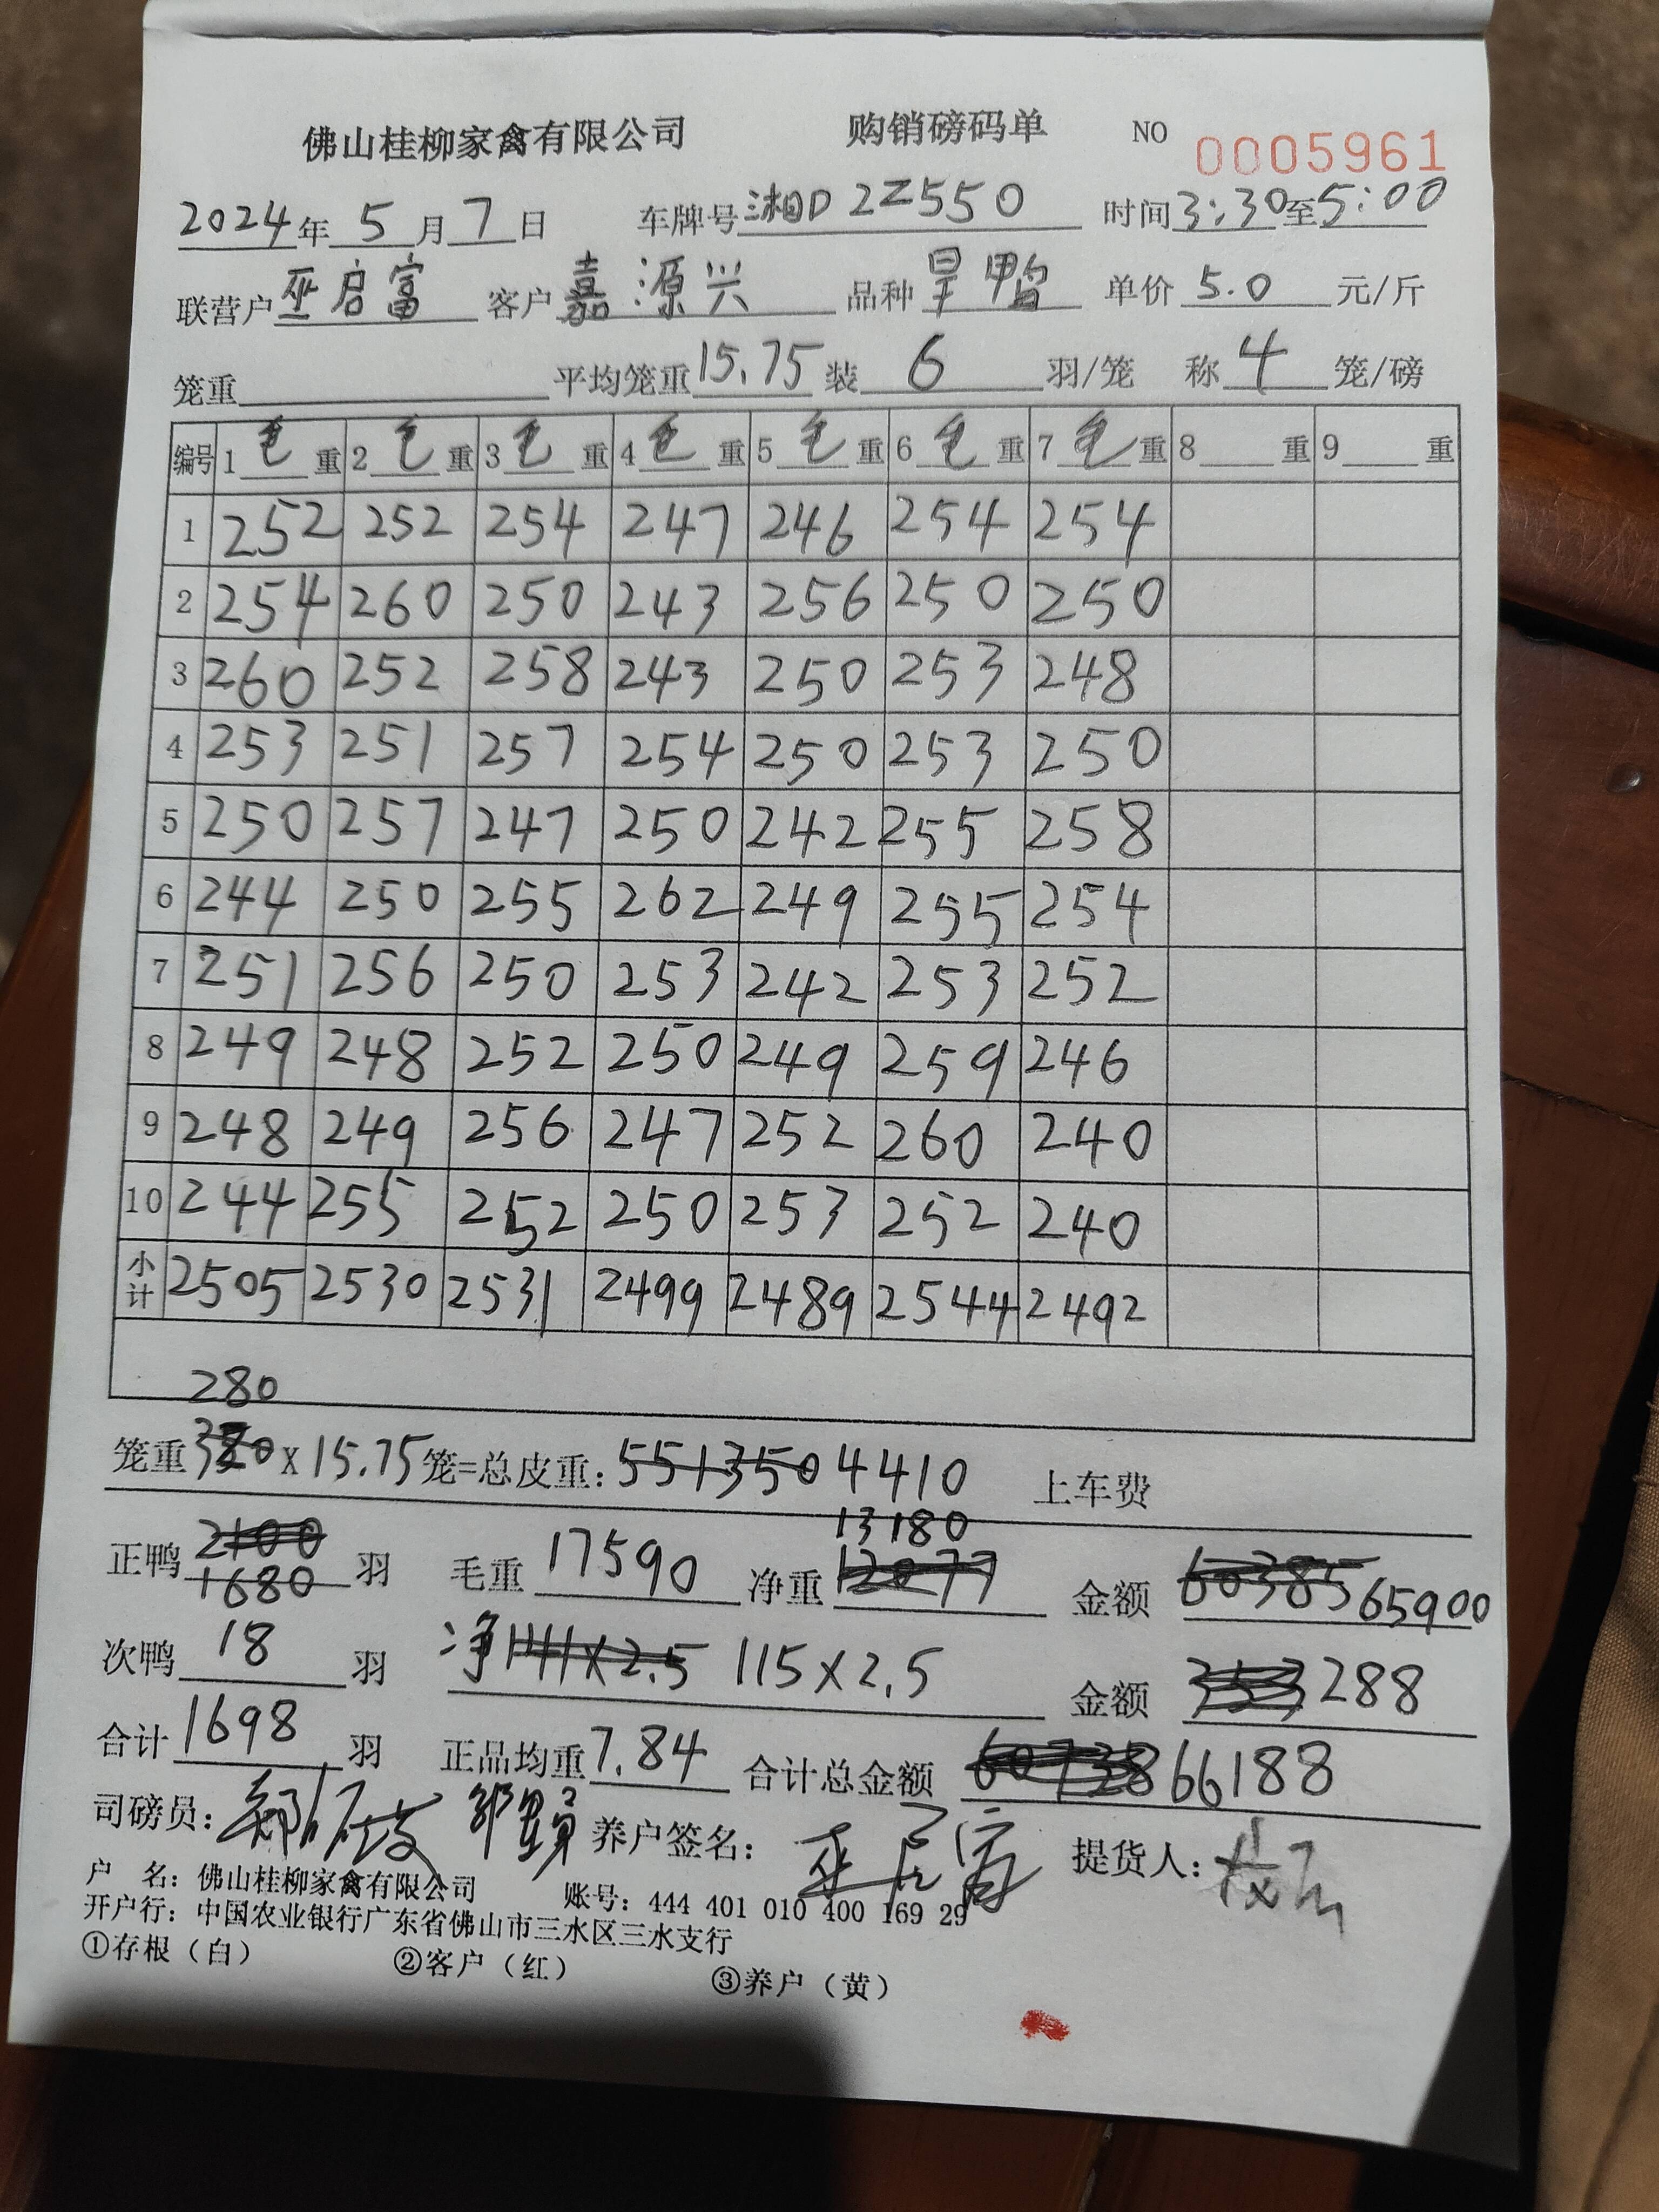 佛山桂柳家禽有限公司 购销磅码单 NO 0005961
2024年5月7日 车牌号湘D 2Z550 时间3:30至5:00
联营户巫启富 客户嘉源兴 品种旱鸭 单价5.0元/斤
笼重 平均笼重15.75装6羽/笼 称4笼/磅
编号 1毛重 2毛重 3毛重 4毛重 5毛重 6毛重 7毛重 8重 9重
1 252 252 254 247 246 254 254
2 254 260 250 243 256 250 250
3 260 252 258 243 250 253 248
4 253 251 257 254 250 253 250
5 250 257 247 250 242 255 258
6 244 250 255 262 249 255 254
7 251 256 250 253 242 253 252
8 249 248 252 250 249 259 246
9 248 249 256 247 252 260 240
10 244 255 252 250 253 252 240
小计 2505 2530 2531 2499 2489 2544 2492
280
笼重 X 15.75笼=总皮重:551350 4410 上车费
正鸭 2100 1680 羽 毛重 17590 净重 12077 13180 金额 60385 65900
次鸭 18 羽 净 111X2.5 115X2.5 金额 353 288
合计 1698 羽 正品均重 7.84 合计总金额 60738 66188
司磅员: 养户签名:巫启富 提货人:
户 名:佛山桂柳家禽有限公司 账号:444 401 010 400 169 29
开户行:中国农业银行广东省佛山市三水区三水支行
①存根(白) ②客户(红) ③养户(黄)